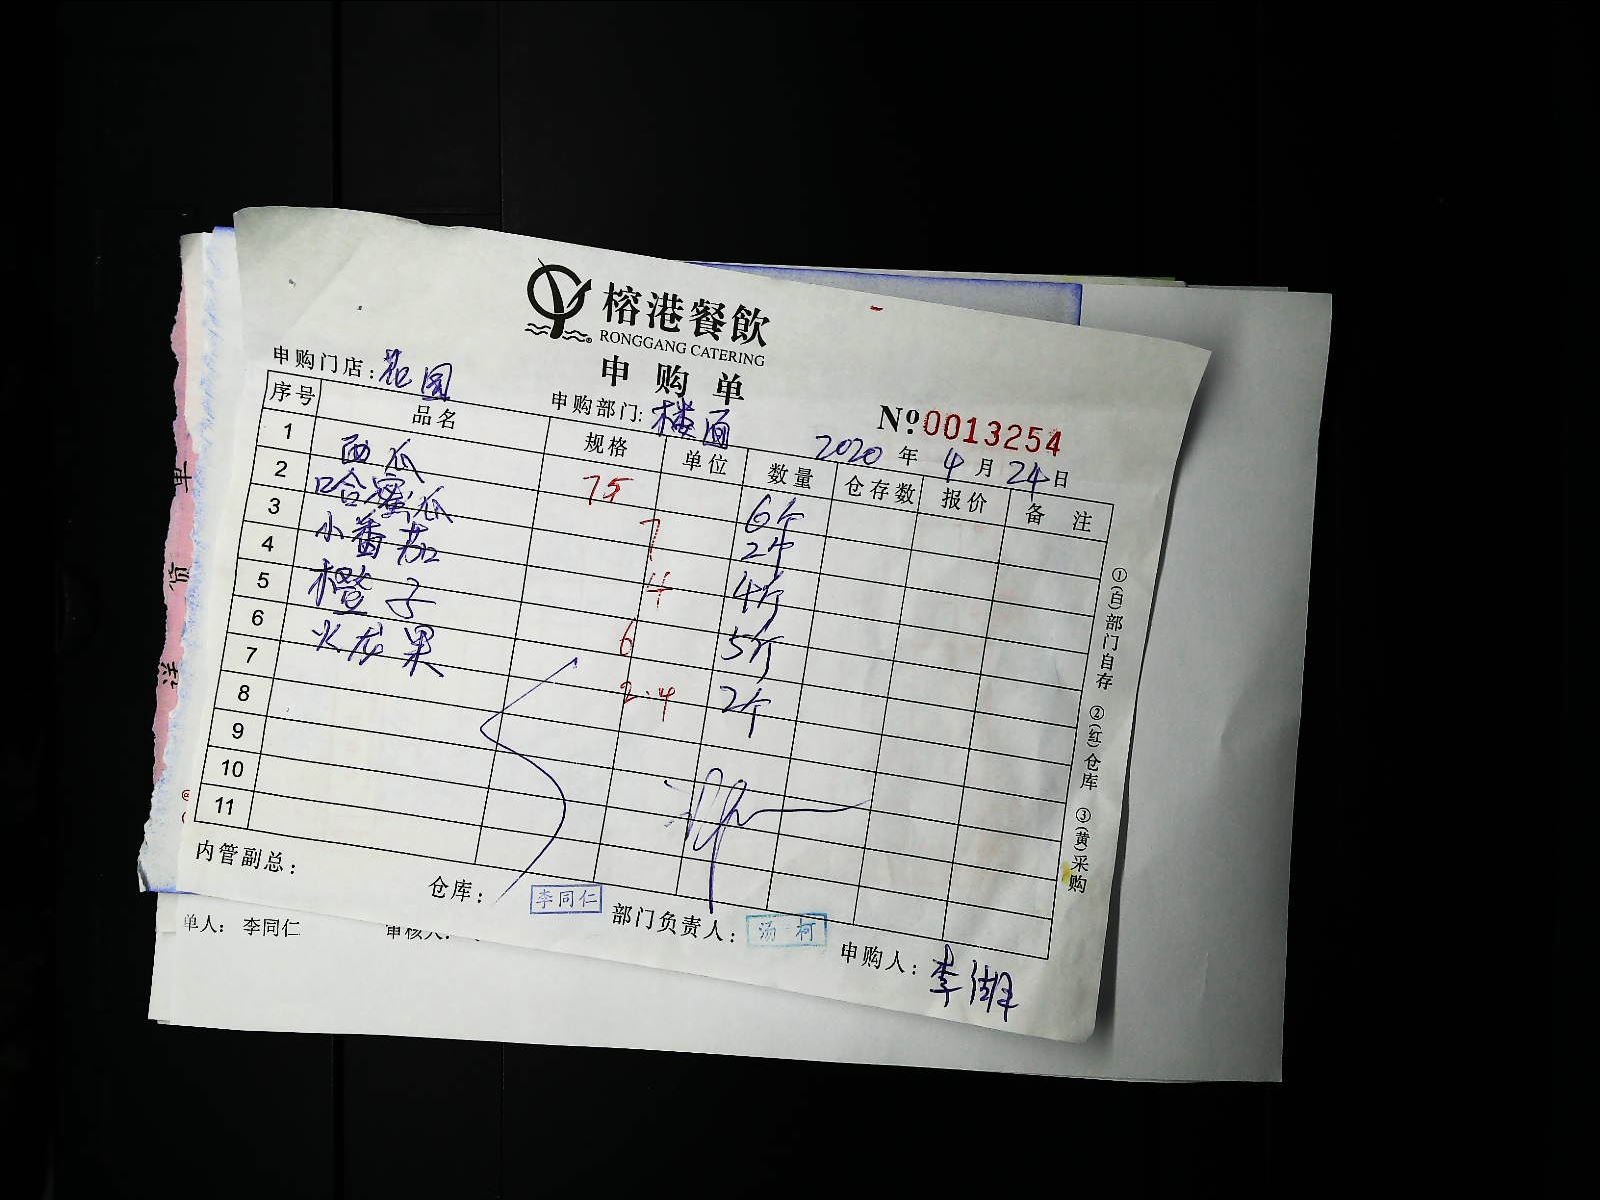 榕港餐飲
RONGGANG CATERING
申购单
申购门店：花园
申购部门：楼面
№ 0013254
2020 年 4 月 24 日
序号 品名 规格 单位 数量 仓存数 报价 备注
1 西瓜 75 6个
2 哈蜜瓜 7 2个
3 小番茄 4 4斤
4 橙子 6 5斤
5 火龙果 2.4 2个
6
7
8
9
10
11
①(白)部门自存 ②(红)仓库 ③(黄)采购
内管副总：
仓库： 李同仁
部门负责人： 汤柯
申购人：李湖
单人： 李同仁
审核人：